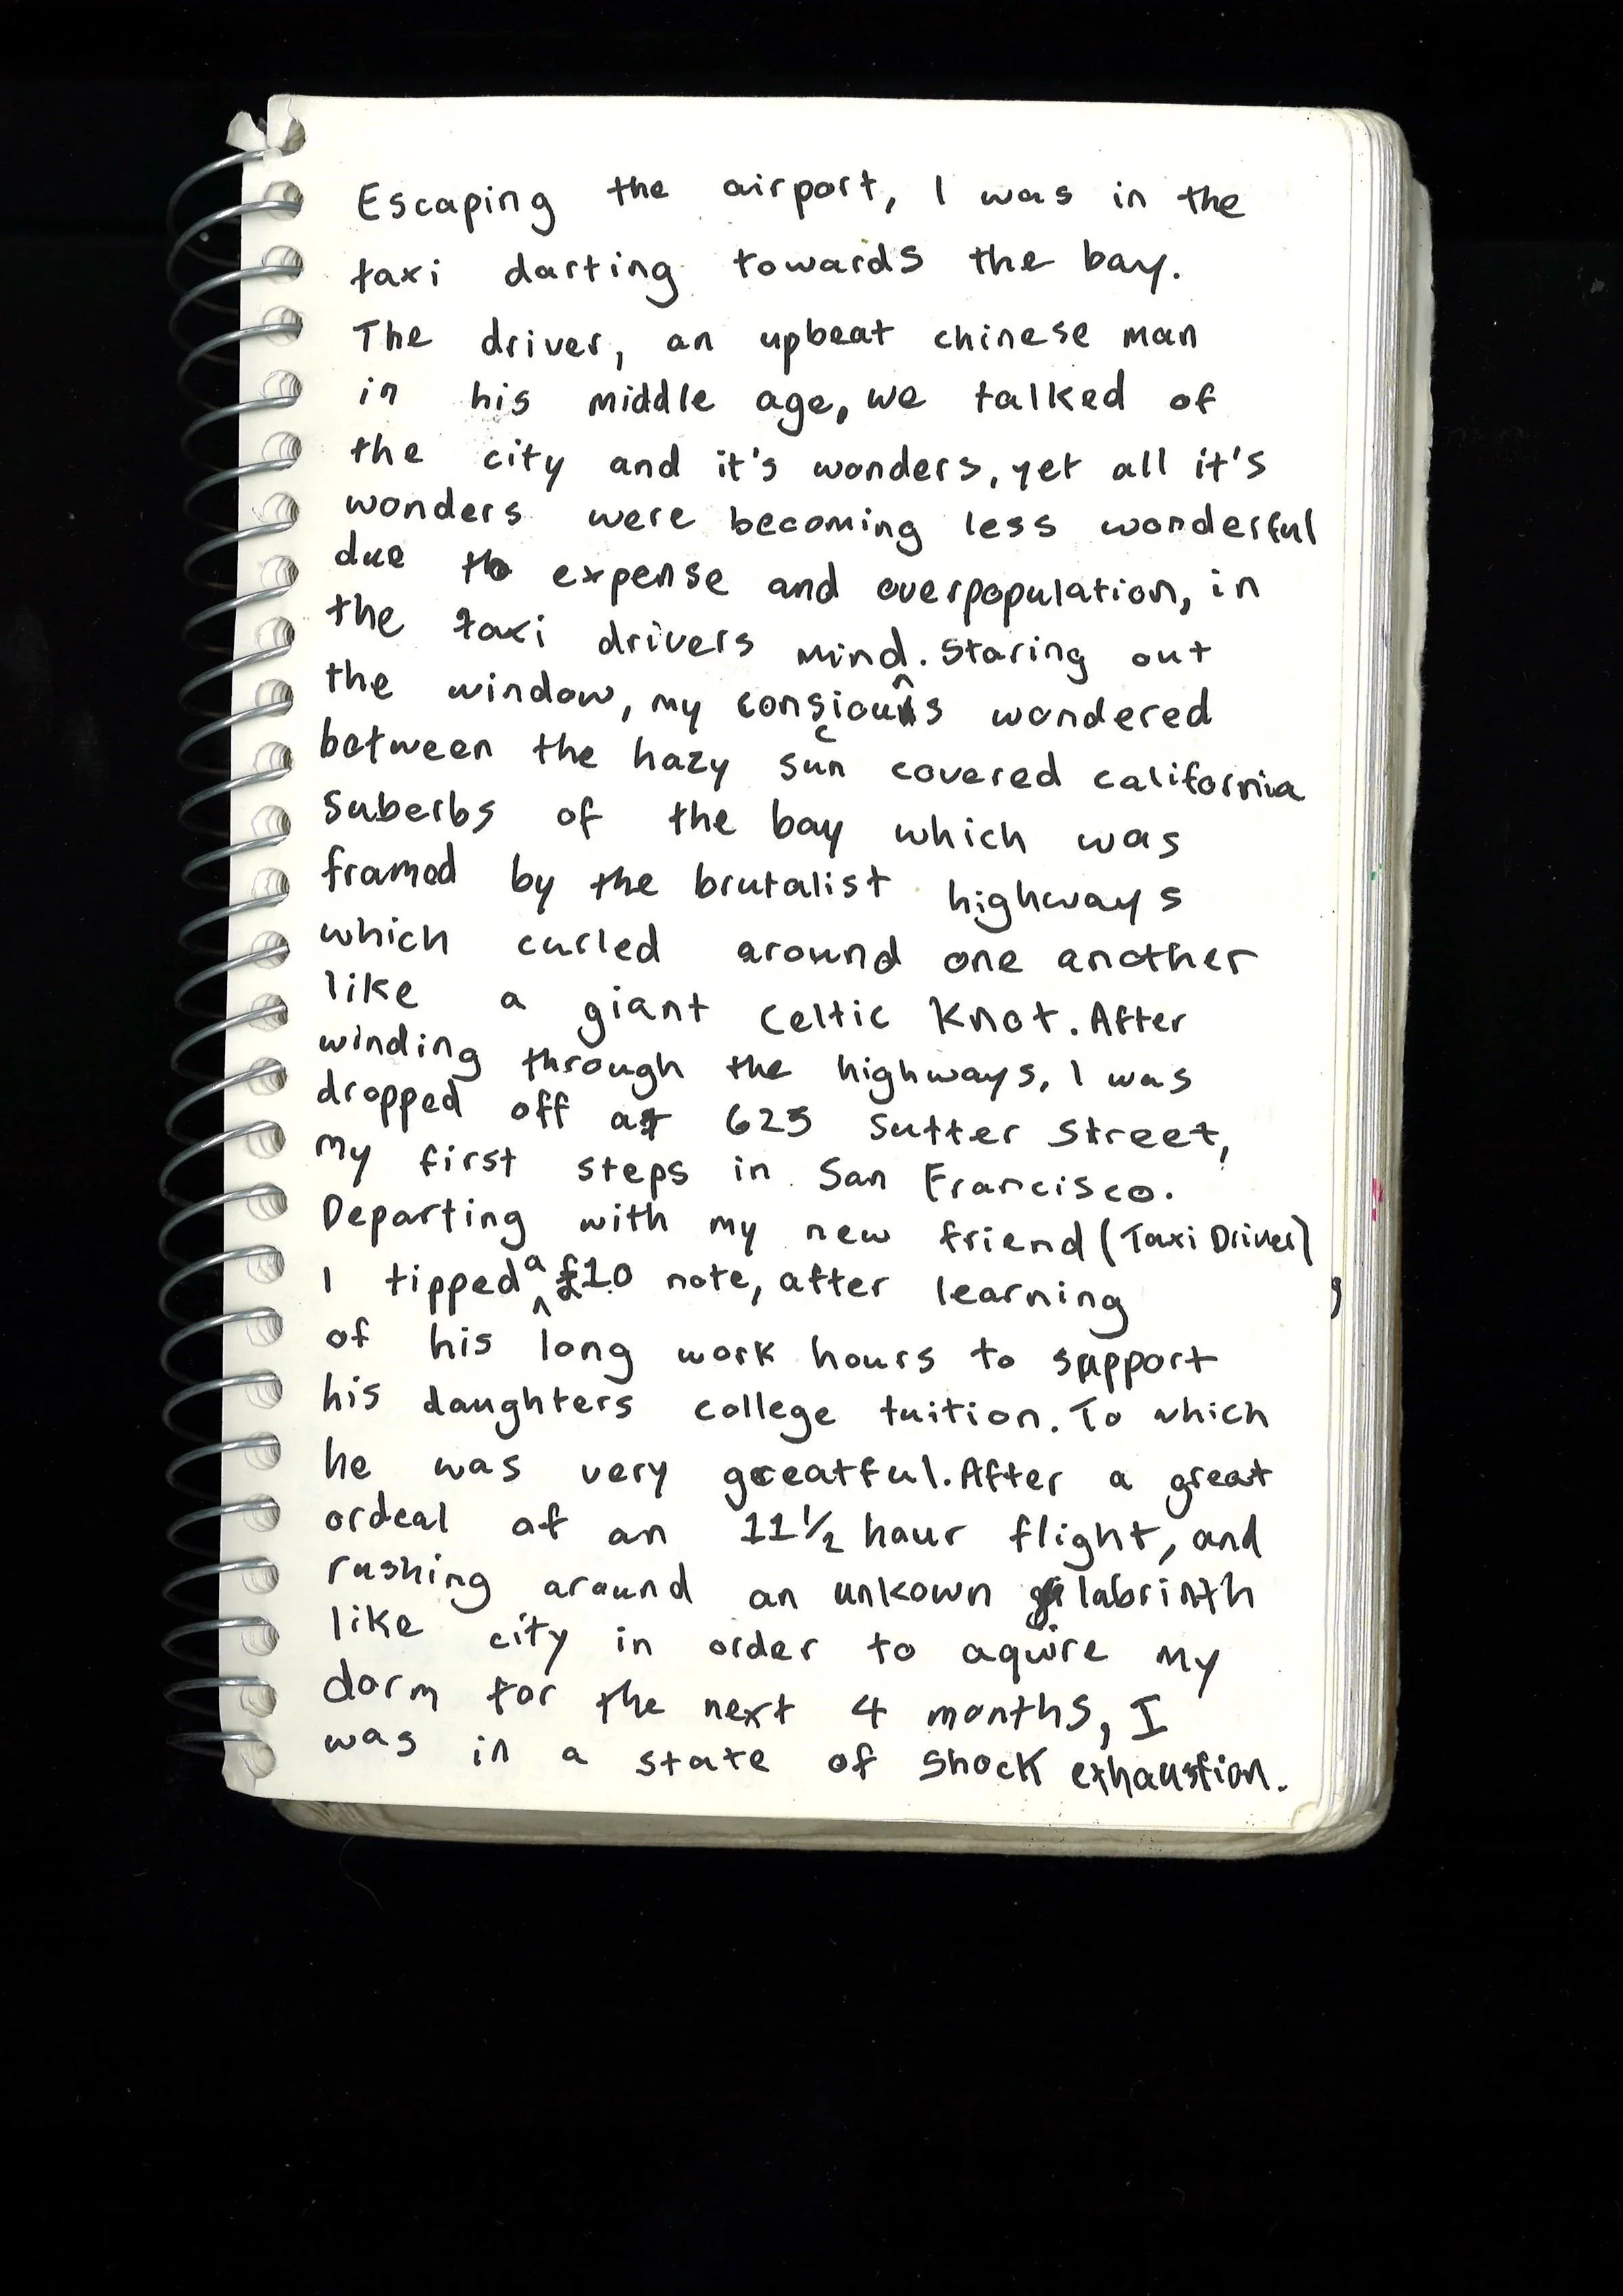 Escaping the airport, I was in the
taxi darting towards the bay.
The driver, an upbeat chinese man
in his middle age, we talked of
the city and it's wonders, yet all it's
wonders were becoming less wonderful
due to expense and overpopulation, in
the taxi drivers mind. Staring out
the window, my conscious wondered
between the hazy sun covered california
suberbs of the bay which was
framed by the brutalist highways
which curled around one another
like a giant celtic knot. After
winding through the highways, I was
dropped off at 625 Sutter Street,
My first steps in San Francisco.
Departing with my new friend (Taxi Driver)
I tipped a £10 note, after learning
of his long work hours to support
his daughters college tuition. To which
he was very greatful. After a great
ordeal of an 11½ hour flight, and
rushing around an unkown labrinth
like city in order to aquire my
dorm for the next 4 months, I
was in a state of shock exhaustion.